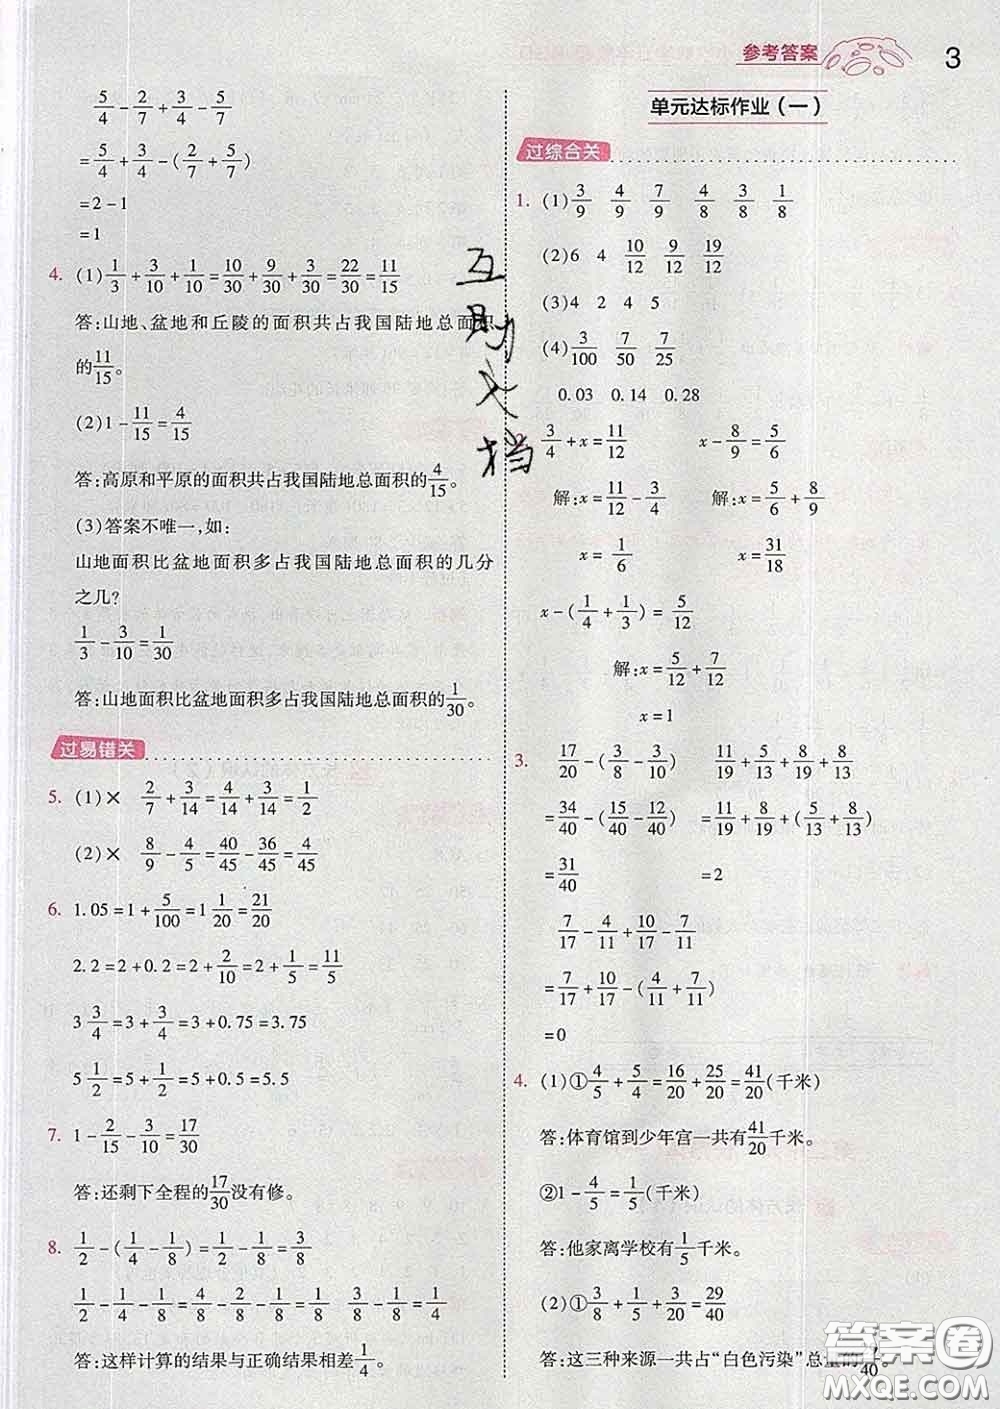 参考答案 3
5/4 - 2/7 + 3/4 - 5/7
= 5/4 + 3/4 - (2/7 + 5/7)
=2-1
=1
4. (1) 1/3 + 3/10 + 1/10 = 10/30 + 9/30 + 3/30 = 22/30 = 11/15
答:山地、盆地和丘陵的面积共占我国陆地总面积
的11/15。
(2) 1 - 11/15 = 4/15
答:高原和平原的面积共占我国陆地总面积的4/15。
(3)答案不唯一,如:
山地面积比盆地面积多占我国陆地总面积的几分
之几?
1/3 - 3/10 = 1/30
答:山地面积比盆地面积多占我国陆地总面积的1/30。
过易错关
5. (1)× 2/7 + 3/14 = 4/14 + 3/14 = 1/2
(2)× 8/9 - 4/5 = 40/45 - 36/45 = 4/45
6. 1.05=1+ 5/100 =1 1/20 = 21/20
2.2=2+0.2=2+ 2/10 =2+ 1/5 = 11/5
3 3/4 =3+ 3/4 =3+0.75=3.75
5 1/2 =5+ 1/2 =5+0.5=5.5
7. 1- 2/15 - 3/10 = 17/30
答:还剩下全程的17/30没有修。
8. 1/2 - (1/4 - 1/8) = 1/2 - 1/8 = 3/8
1/2 - 1/4 - 1/8 = 4/8 - 2/8 - 1/8 = 1/8 3/8 - 1/8 = 1/4
答:这样计算的结果与正确结果相差1/4。
互助文档
单元达标作业(一)
过综合关
1. (1) 3/9 4/9 7/9 4/8 3/8 1/8
(2)6 4 10/12 9/12 19/12
(3)4 2 4 5
(4) 3/100 7/50 7/25
0.03 0.14 0.28
3/4 + x = 11/12 x - 8/9 = 5/6
解:x = 11/12 - 3/4 解:x = 5/6 + 8/9
x = 1/6 x = 31/18
x - (1/4 + 1/3) = 5/12
解:x = 5/12 + 7/12
x=1
3. 17/20 - (3/8 - 3/10) 11/19 + 5/13 + 8/19 + 8/13
= 34/40 - (15/40 - 12/40) = 11/19 + 8/19 + (5/13 + 8/13)
= 31/40 =2
7/17 - 4/11 + 10/17 - 7/11
= 7/17 + 10/17 - (4/11 + 7/11)
=0
4. (1)① 4/5 + 5/4 = 16/20 + 25/20 = 41/20(千米)
答:体育馆到少年宫一共有41/20千米。
②1- 4/5 = 1/5(千米)
答:他家离学校有1/5千米。
(2) 3/8 + 1/5 + 3/20 = 29/40
答:这三种来源一共占“白色污染”总量的
答案圈
MXQE.COM